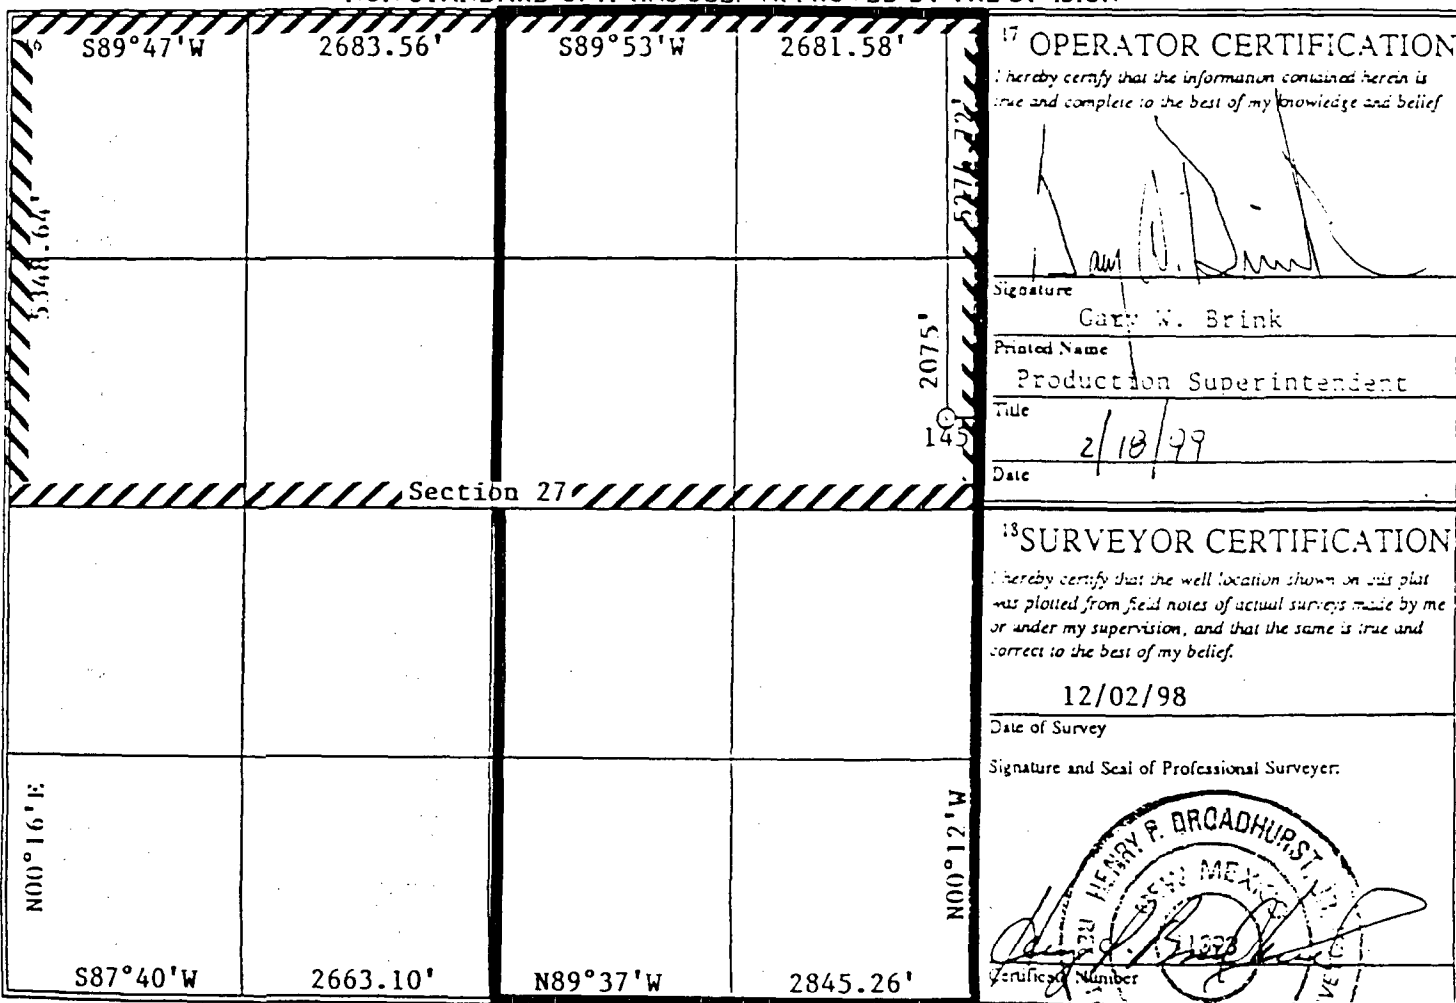 16
S89°47'W 2683.56' S89°53'W 2681.58'
5348.64'
2075'
145'
Section 27
N00°16'E
N00°12'W
S87°40'W 2663.10' N89°37'W 2845.26'
17 OPERATOR CERTIFICATION
I hereby certify that the information contained herein is
true and complete to the best of my knowledge and belief
Signature
Gary W. Brink
Printed Name
Production Superintendent
Title
2/18/99
Date
18 SURVEYOR CERTIFICATION
I hereby certify that the well location shown on this plat
was plotted from field notes of actual surveys made by me
or under my supervision, and that the same is true and
correct to the best of my belief.
12/02/98
Date of Survey
Signature and Seal of Professional Surveyer:
HENRY P. BROADHURST, JR.
NEW MEXICO
Certificate Number